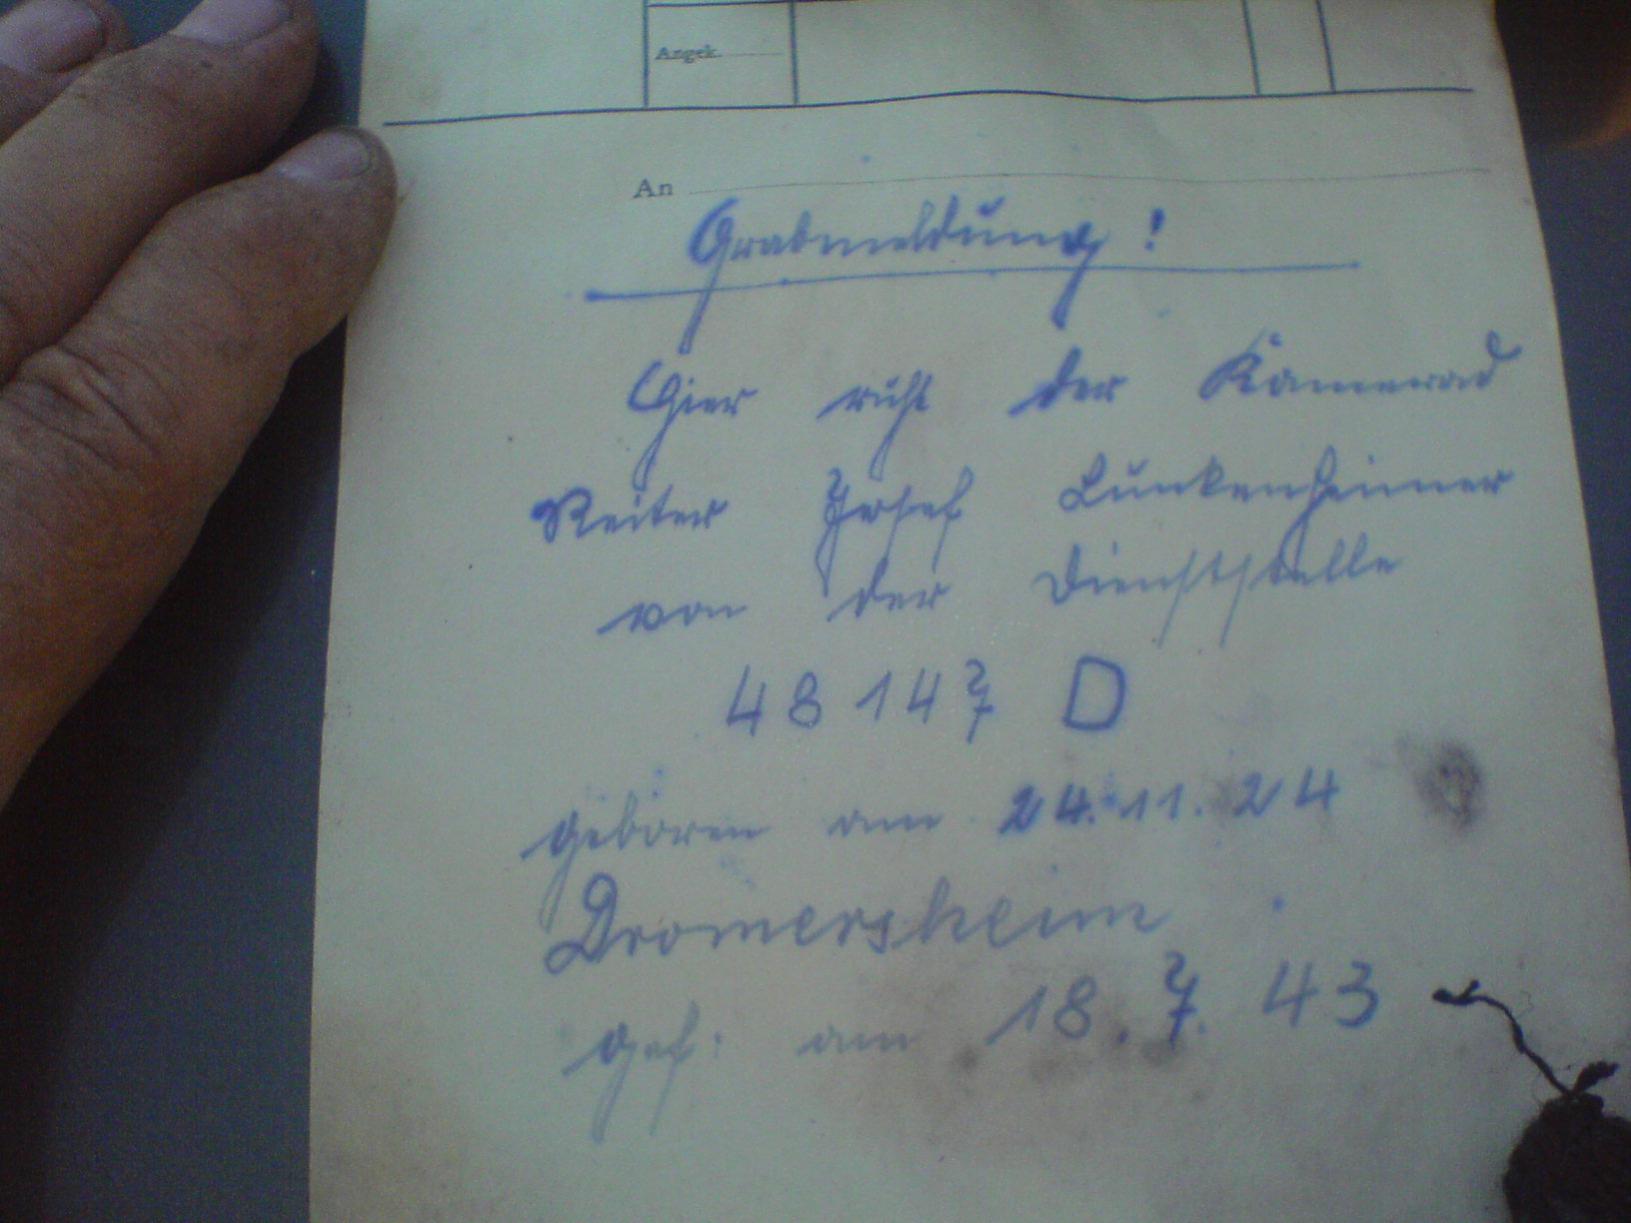 Angek.
An
Grabmeldung!
Hier ruht der Kamerad
Reiter Josef Lunkenheimer
von der Dienststelle
48147 D
geboren am 24.11.24
Dromersheim
gef: am 18.7.43